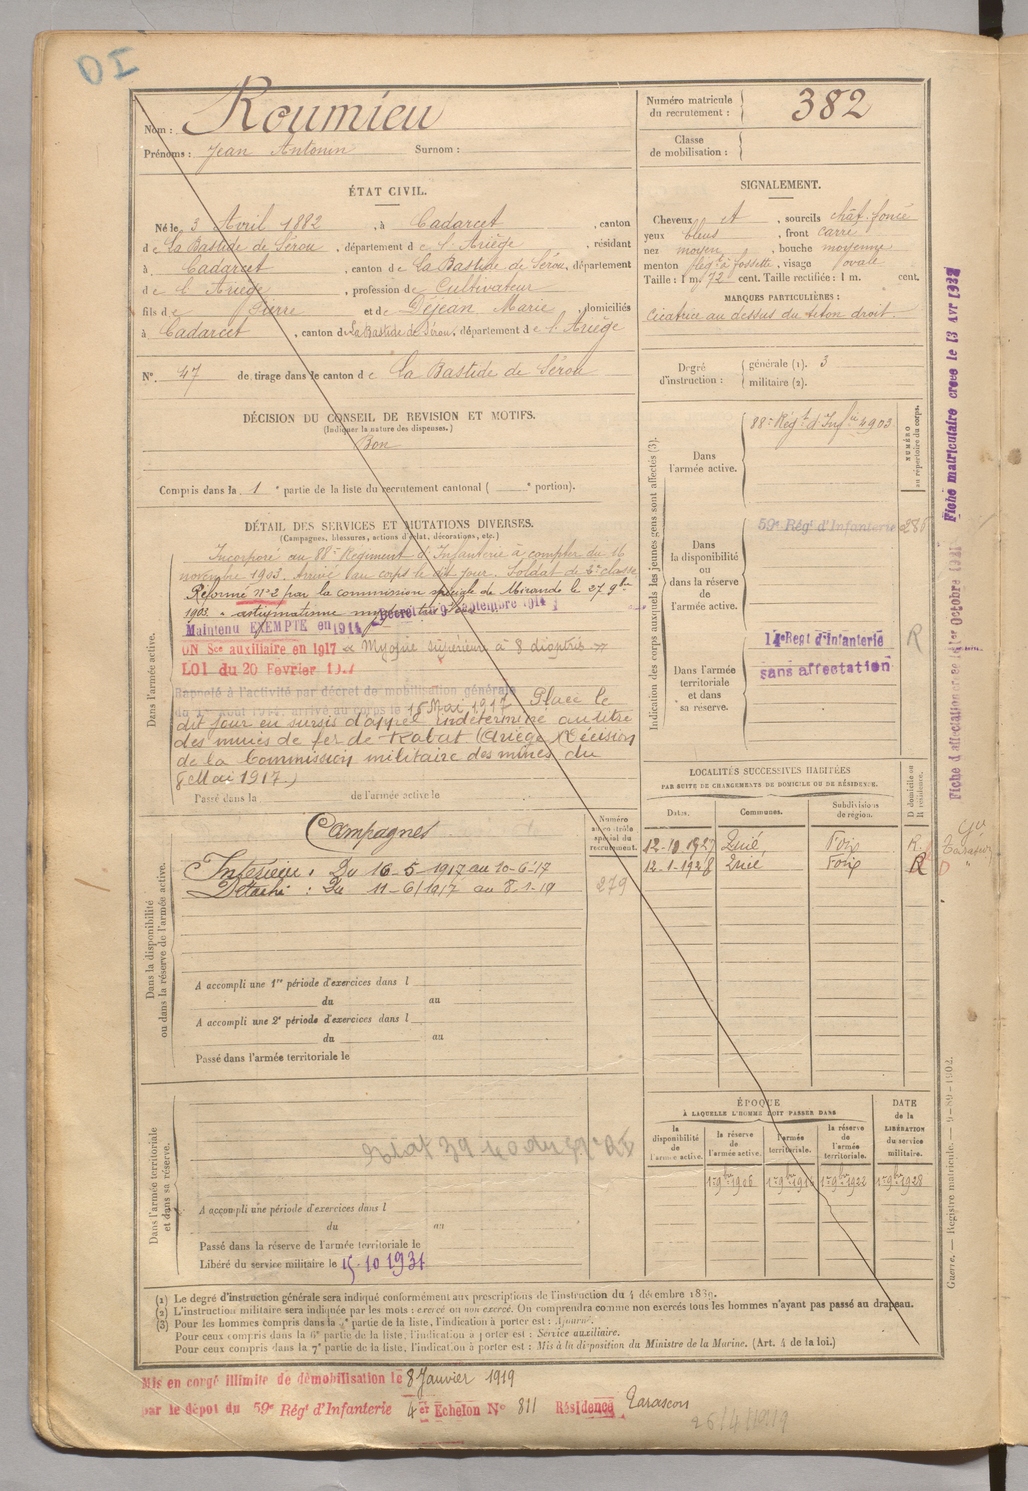 OI
Nom : Roumieu
Prénoms : Jean Antonin Surnom :
Numéro matricule du recrutement : 382
Classe de mobilisation :
ÉTAT CIVIL.
Né le 3 Avril 1882, à Cadarcet, canton
de La Bastide de Sérou, département de l'Ariège, résidant
à Cadarcet, canton de La Bastide de Sérou, département
de l'Ariège, profession de Cultivateur
fils de Pierre et de Déjean Marie, domiciliés
à Cadarcet, canton de La Bastide de Sérou, département de l'Ariège
N° 47 de tirage dans le canton de La Bastide de Sérou
DÉCISION DU CONSEIL DE REVISION ET MOTIFS.
(Indiquer la nature des dispenses.)
Bon
Compris dans la 1e partie de la liste du recrutement cantonal ( e portion).
DÉTAIL DES SERVICES ET MUTATIONS DIVERSES.
(Campagnes, blessures, actions d'éclat, décorations, etc.)
Dans l'armée active.
Incorporé au 88e Régiment d'Infanterie à compter du 16
novembre 1903. Arrivé au corps le dit jour. Soldat de 2e classe
Réformé n° 2 par la commission spéciale de Mirande le 27 9bre
1903 "astigmatisme
Décret du 9 septembre 1914
Maintenu EXEMPTE en 1914
ON Sce auxiliaire en 1917 « Myopie supérieure à 8 dioptries »
LOI du 20 Fevrier 1917
Rappelé à l'activité par décret de mobilisation générale
du 1er Août 1914, arrivé au corps le 16 Mai 1917 Placé le
dit jour en sursis d'appel indéterminé au titre
des mines de fer de Rabat (Ariège) Décision
de la Commission militaire des mines du
8 Mai 1917.)
Passé dans la de l'armée active le
Numéro au contrôle spécial du recrutement.
279
Dans la disponibilité ou dans la réserve de l'armée active.
Campagnes
Intérieur : Du 16-5-1917 au 10-6-17
Détaché : Du 11-6-1917 au 8-1-19
A accompli une 1re période d'exercices dans l
du au
A accompli une 2e période d'exercices dans l
du au
Passé dans l'armée territoriale le
Dans l'armée territoriale et dans sa réserve.
A accompli une période d'exercices dans l
du au
Passé dans la réserve de l'armée territoriale le
Libéré du service militaire le 15-10 1931
SIGNALEMENT.
Cheveux et, sourcils chât. foncé
yeux bleus, front carré
nez moyen, bouche moyenne
menton à fossette, visage ovale
Taille : 1 m. 72 cent. Taille rectifiée : 1 m. cent.
MARQUES PARTICULIÈRES :
Cicatrice au dessus du téton droit.
Degré d'instruction : générale (1). 3
militaire (2).
Indication des corps auxquels les jeunes gens sont affectés (3).
NUMÉRO au répertoire du corps.
Dans l'armée active.
88e Régt d'Infie 4903
Dans la disponibilité ou dans la réserve de l'armée active.
59e Régt d'Infanterie 286
Dans l'armée territoriale et dans sa réserve.
14e Regt d'Infanterie R
sans affectation
LOCALITÉS SUCCESSIVES HABITÉES
PAR SUITE DE CHANGEMENTS DE DOMICILE OU DE RÉSIDENCE.
Dates. Communes. Subdivisions de région. D domicile ou R résidence.
12-10 1927 Quié, Foix R.
12-1-1928 Quié Foix R D
ÉPOQUE
À LAQUELLE L'HOMME DOIT PASSER DANS
DATE de la LIBÉRATION du service militaire.
la disponibilité de l'armée active. la réserve de l'armée active. l'armée territoriale. la réserve de l'armée territoriale.
1er 9bre 1906 1er 9bre 1916 1er 9bre 1922 1er 9bre 1928
(1) Le degré d'instruction générale sera indiqué conformément aux prescriptions de l'instruction du 4 décembre 1889.
(2) L'instruction militaire sera indiquée par les mots : exercé ou non exercé. On comprendra comme non exercés tous les hommes n'ayant pas passé au drapeau.
(3) Pour les hommes compris dans la partie de la liste, l'indication à porter est : Ajourné.
Pour ceux compris dans la 6e partie de la liste, l'indication à porter est : Service auxiliaire.
Pour ceux compris dans la 7e partie de la liste, l'indication à porter est : Mis à la disposition du Ministre de la Marine. (Art. 4 de la loi.)
Mis en congé illimité de démobilisation le 8 Janvier 1919
par le dépot du 59e Régt d'Infanterie 4er Echelon N° 811 Résidence Tarascon
26/4/1919
Fiche matriculaire créée le 13 Avr
Fiche d'affectation créée le 1er Octobre
Guerre. — Registre matricule. — 9-89-1902.